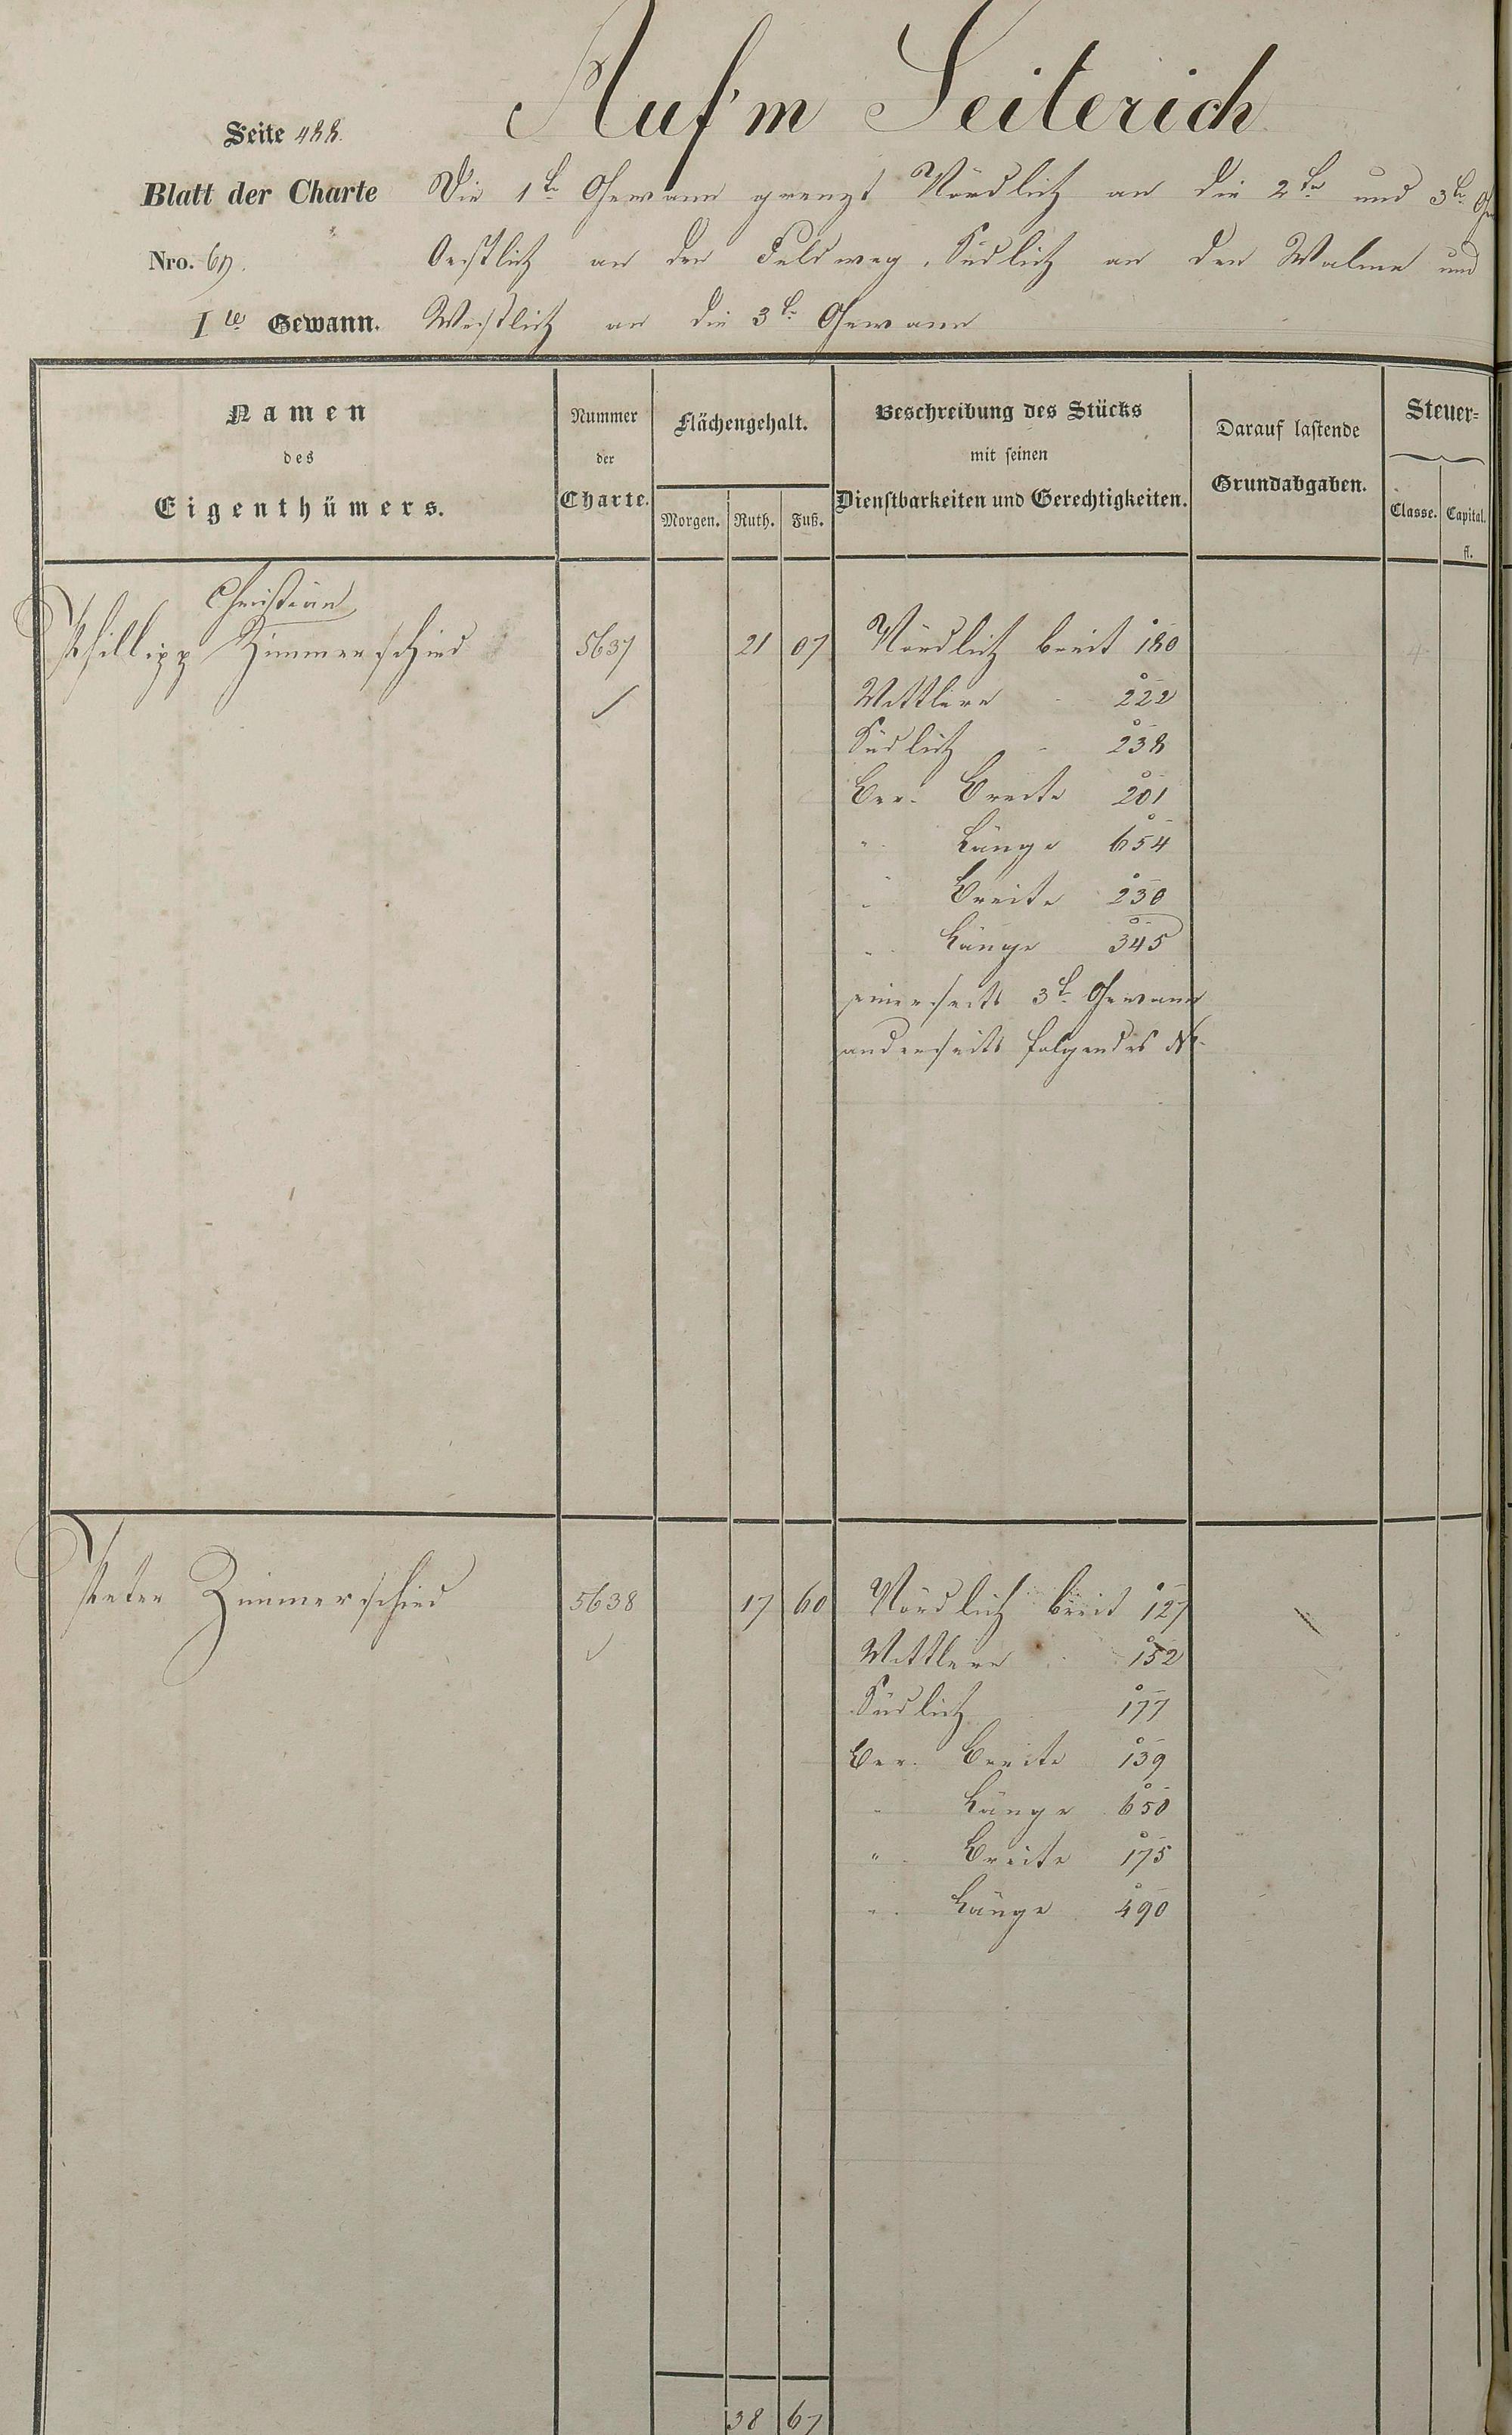 Auf'm Seiterich
Seite 488.
Blatt der Charte
Die 1te Gewann grenzt Nördlich an die 2te und 3te
Nro. 69.
Oestlich an den Feldweg, Südlich an den und
Ite Gewann.
Westlich an die 3te Gewann
Namen
des
Eigenthümers.
Nummer
der
Charte.
Flächengehalt.
Morgen. Ruth. Fuß.
Beschreibung des Stücks
mit seinen
Dienstbarkeiten und Gerechtigkeiten.
Darauf lastende
Grundabgaben.
Steuer-
Classe. Capital.
fl.
Christian
Phillipp Zimmerschied 5637 21 07 Nördlich breit 180
Mittlere 222
Südlich 238
Ber. Breite 201
" Länge 654
" Breite 230
" Länge 345
einerseits 3te Gewann
anderseits folgendes No
Peter Zimmerschied 5638 17 60 Nördlich breit 127
Mittlere 152
Südlich 177
Ber. Breite 139
" Länge 650
" Breite 175
" Länge 490
38 67